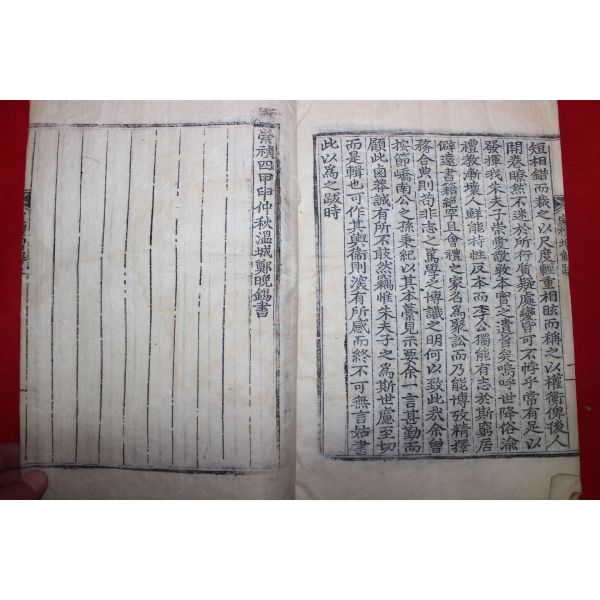 短相錯而裁之以尺度輕重相眩而稱之以權衡俾後人
開卷瞭然不迷於所行質疑處變皆可不悖乎當有足以
發揮我朱夫子崇愛敬敦本實之遺旨矣嗚呼世降俗渝
禮敎漸壞人鮮能持性反本而李公獨能有志於斯窮居
僻遠書籍絶罕且會禮之家名爲聚訟而乃能博攷精擇
務合典則苟非志之篤學之博識之明何以致此哉余曾
按節嶠南公之孫秉紀以其本藁見示要余一言甚勤而
顧此鹵莽誠有所不敢然竊惟朱夫子之爲斯世慮至切
而是輯也可作其輿衞則深有所感而終不可無言姑書
此以爲之跋時
崇禎四甲申仲秋溫城鄭晩錫書